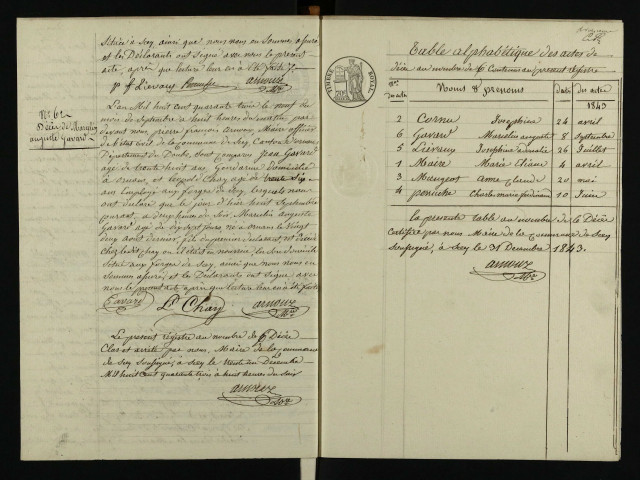 Située à Scey ainsi que nous nous en sommes assuré
et les Déclarants ont signé avec nous le présent
acte, après que lecture leur en a été faite
arnoux
Mre
N° 6
Décès de
auguste Gavard
L'an Mil huit cent quarante trois le neuf du
mois de Septembre à huit heures du matin par
devant nous, pierre françois arnoux Maire officier
de l'état civil de la Commune de Scey Canton
Département du Doubs, sont comparus Jean Gavard
âgé de trente huit ans Gendarme domicilié
à ornans, et Léopold Chay âgé de trente six
ans Employé aux forges de Scey, lesquels nous
ont déclaré que le jour d'hier huit Septembre
courant, à deux heures du soir Marcelin auguste
Gavard âgé de dix sept jours né à ornans le vingt
deux aout dernier, fils du premier déclarant, est décédé
chez ledit Chay où il était en nourrice,
située aux forges de Scey, ainsi que nous nous en
sommes assuré, et les Déclarants ont signé avec
nous le présent acte après que lecture leur en a été faite
Gavard L. Chay arnoux
Mre
Le présent registre au nombre de 6 Décès
Clos et arrêté par nous, Maire de la commune
de Scey soussigné, à Scey le trente un Décembre
Mil huit cent quarante trois à huit heures du soir
arnoux
Mre
TIMBRE ROYAL
Table alphabétique des actes de
décès au nombre de 6 Contenus au présent registre
Nos des actes
Noms & prénoms
Date des actes
1843
2 Cornu Joséphine 24 avril
6 Gavard Marcelin auguste 8 Septembre
5 Lievremy Joséphine amalie 26 Juillet
1 Maire Marie Eliane 4 avril
3 Maugeot anne claude 20 mai
4 Charles marie ferdinand 10 Juin
La présente table au nombre de 6 Décès
Certifiée par nous Maire de la commune de Scey
Soussigné, à Scey le 31 Décembre 1843.
arnoux
Mre